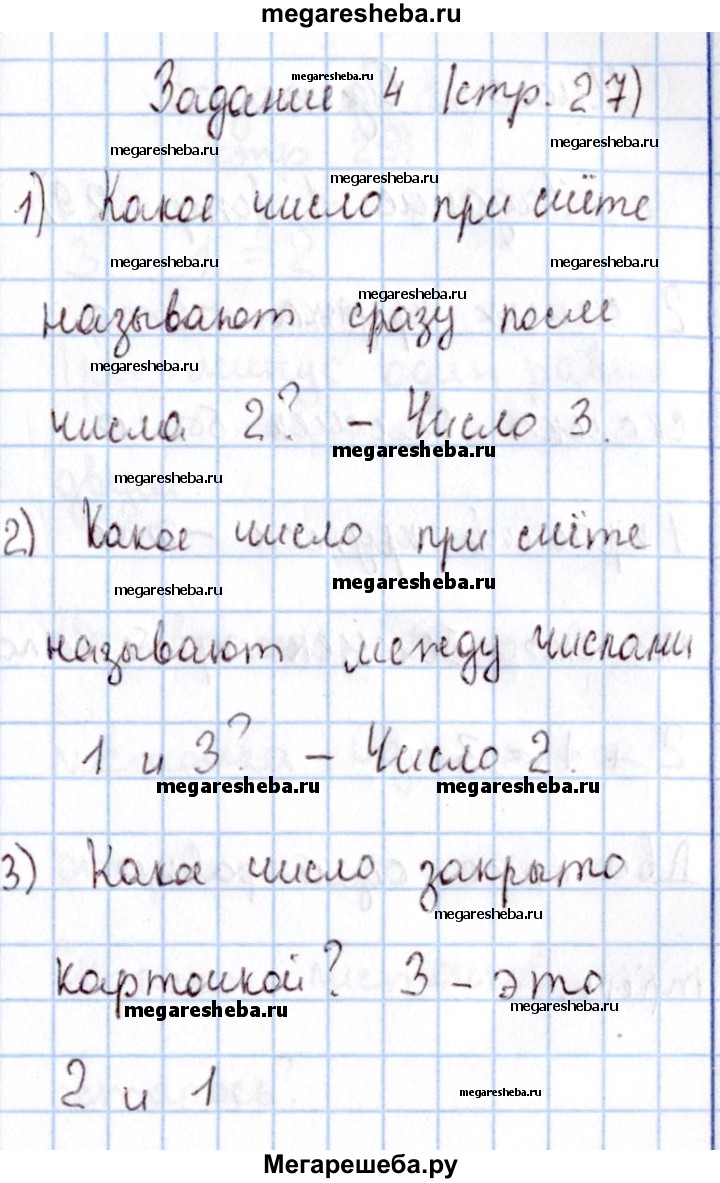 megaresheba.ru
megaresheba.ru
Задание 4 (стр. 27)
megaresheba.ru megaresheba.ru
megaresheba.ru
1) Какое число при счёте
megaresheba.ru megaresheba.ru
megaresheba.ru
называют сразу после
megaresheba.ru
числа 2? – Число 3.
megaresheba.ru
megaresheba.ru
2) Какое число при счёте
megaresheba.ru megaresheba.ru
называют между числами
1 и 3? – Число 2.
megaresheba.ru megaresheba.ru
3) Какое число закрыто
megaresheba.ru
карточкой? 3 – это
megaresheba.ru megaresheba.ru
2 и 1
megaresheba.ru
Мегарешеба.ру